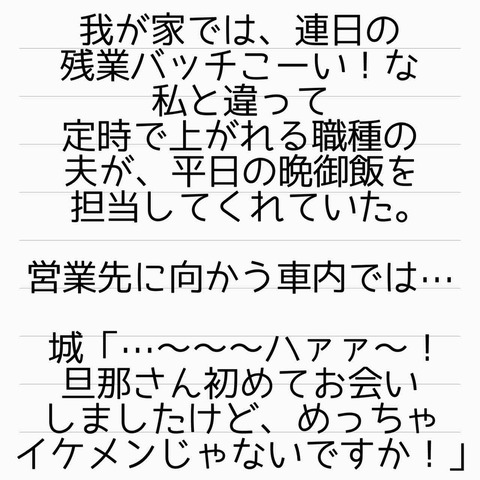 我が家では、連日の
残業バッチこーい！な
私と違って
定時で上がれる職種の
夫が、平日の晩御飯を
担当してくれていた。
営業先に向かう車内では…
城「…〜〜〜ハァァ〜！
旦那さん初めてお会い
しましたけど、めっちゃ
イケメンじゃないですか！」